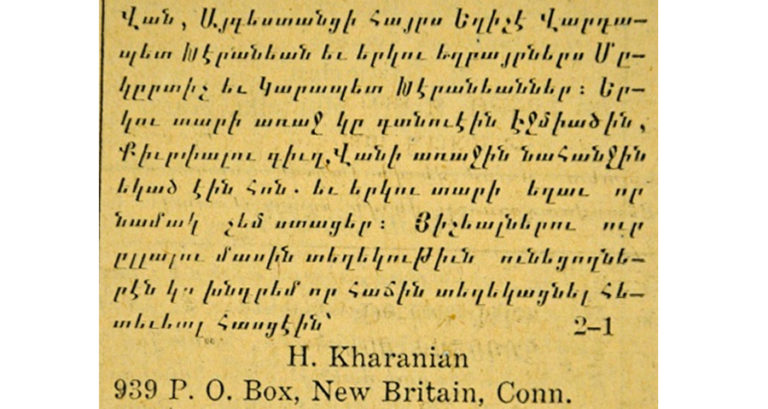 Վան, Այգեստանցի Հայրս Եղիշէ Վարդա–
պետ Խէրանեան եւ երկու եղբայրներս Մը–
կըրտիչ եւ Կարապետ Խէրանեաններ։ Եր–
կու տարի առաջ կը գտնուէին Էջմիածին,
Քիւրփալու գիւղ, Վանի առաջին նահանջին
եկած էին հոն. եւ երկու տարի եղաւ որ
նամակ չեմ ստացեր։ Յիշեալներու ուր
ըլլալու մասին տեղեկութիւն ունեցողնե–
րէն կը խնդրեմ որ հաճին տեղեկացնել հե–
տեւեալ հասցէին՝ 2–1
H. Kharanian
939 P. O. Box, New Britain, Conn.